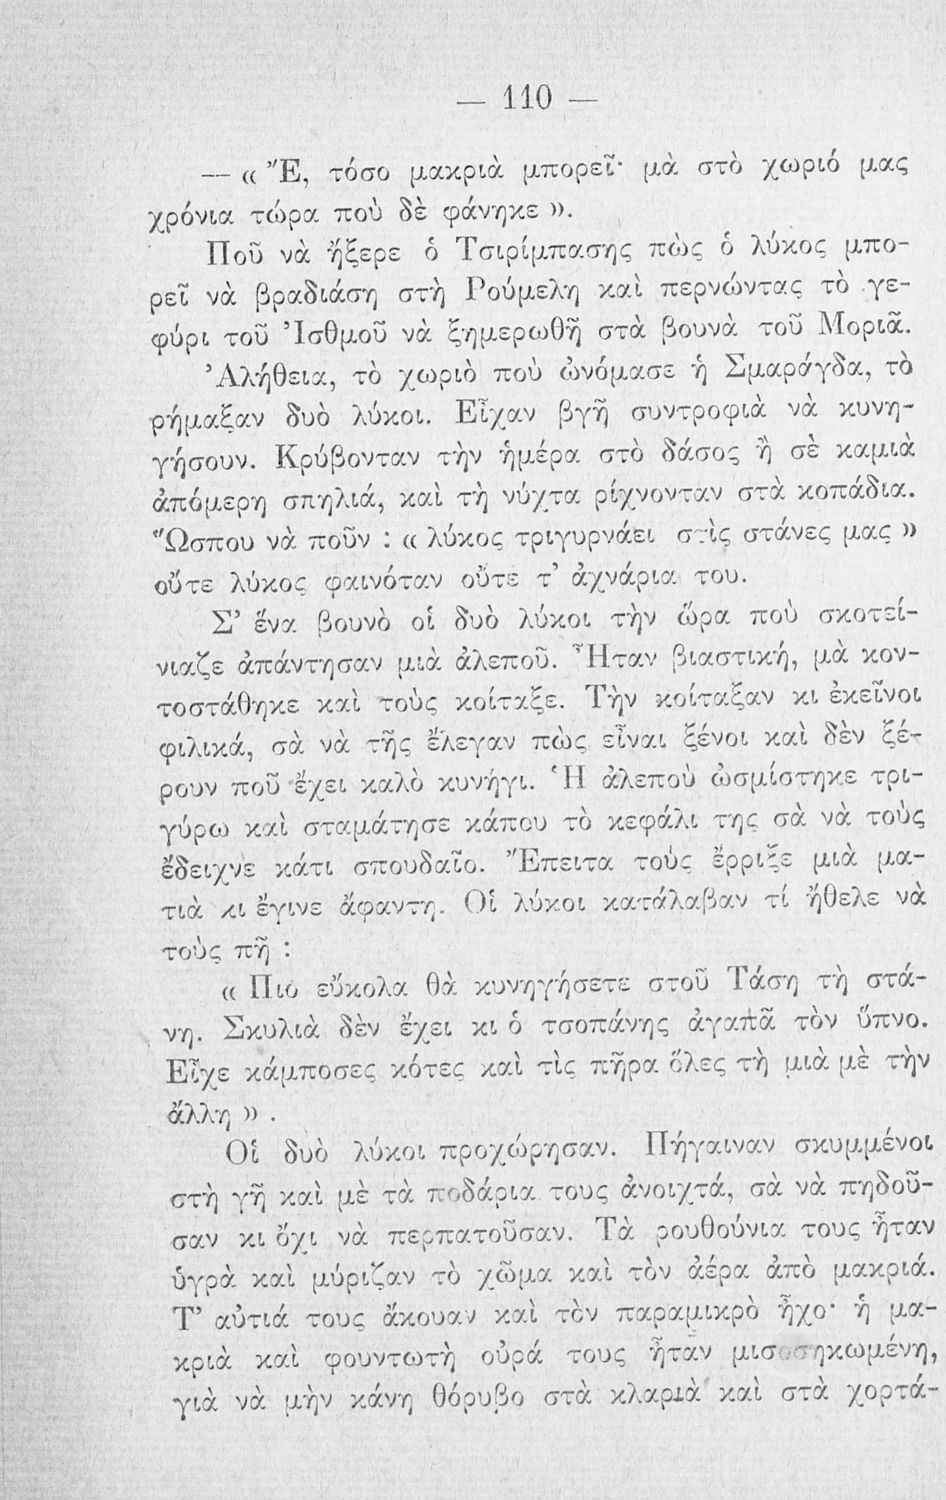 — 110 —
— « Ἔ, τόσο μακριὰ μπορεῖ· μὰ στὸ χωριό μας
χρόνια τώρα ποὺ δὲ φάνηκε ».
Ποῦ νὰ ἤξερε ὁ Τσιρίμπασης πὼς ὁ λύκος μπο-
ρεῖ νὰ βραδιάση στὴ Ρούμελη καὶ περνώντας τὸ γε-
φύρι τοῦ Ἰσθμοῦ νὰ ξημερωθῆ στὰ βουνὰ τοῦ Μοριᾶ.
Ἀλήθεια, τὸ χωριὸ ποὺ ὠνόμασε ἡ Σμαράγδα, τὸ
ρήμαξαν δυὸ λύκοι. Εἶχαν βγῆ συντροφιὰ νὰ κυνη-
γήσουν. Κρύβονταν τὴν ἡμέρα στὸ δάσος ἢ σὲ καμιὰ
ἀπόμερη σπηλιά, καὶ τὴ νύχτα ρίχνονταν στὰ κοπάδια.
Ὥσπου νὰ ποῦν : « λύκος τριγυρνάει στὶς στάνες μας »
οὔτε λύκος φαινόταν οὔτε τ’ ἀχνάρια του.
Σ’ ἕνα βουνὸ οἱ δυὸ λύκοι τὴν ὥρα ποὺ σκοτεί-
νιαζε ἀπάντησαν μιὰ ἀλεποῦ. Ἦταν βιαστική, μὰ κον-
τοστάθηκε καὶ τοὺς κοίταξε. Τὴν κοίταξαν κι ἐκεῖνοι
φιλικά, σὰ νὰ τῆς ἔλεγαν πὼς εἶναι ξένοι καὶ δὲν ξέ-
ρουν ποῦ ἔχει καλὸ κυνήγι. Ἡ ἀλεποὺ ὠσμίστηκε τρι-
γύρω καὶ σταμάτησε κάπου τὸ κεφάλι της σὰ νὰ τοὺς
ἔδειχνε κάτι σπουδαῖο. Ἔπειτα τοὺς ἔρριξε μιὰ μα-
τιὰ κι ἔγινε ἄφαντη. Οἱ λύκοι κατάλαβαν τί ἤθελε νὰ
τοὺς πῆ :
« Πιὸ εὔκολα θὰ κυνηγήσετε στοῦ Τάση τὴ στά-
νη. Σκυλιὰ δὲν ἔχει κι ὁ τσοπάνης ἀγαπᾶ τὸν ὕπνο.
Εἶχε κάμποσες κότες καὶ τὶς πῆρα ὅλες τὴ μιὰ μὲ τὴν
ἄλλη » .
Οἱ δυὸ λύκοι προχώρησαν. Πήγαιναν σκυμμένοι
στὴ γῆ καὶ μὲ τὰ ποδάρια τους ἀνοιχτά, σὰ νὰ πηδοῦ-
σαν κι ὄχι νὰ περπατοῦσαν. Τὰ ρουθούνια τους ἦταν
ὑγρὰ καὶ μύριζαν τὸ χῶμα καὶ τὸν ἀέρα ἀπὸ μακριά.
Τ’ αὐτιά τους ἄκουαν καὶ τὸν παραμικρὸ ἦχο· ἡ μα-
κριὰ καὶ φουντωτὴ οὐρά τους ἦταν μισοσηκωμένη,
γιὰ νὰ μὴν κάνη θόρυβο στὰ κλαριὰ καὶ στὰ χορτά-